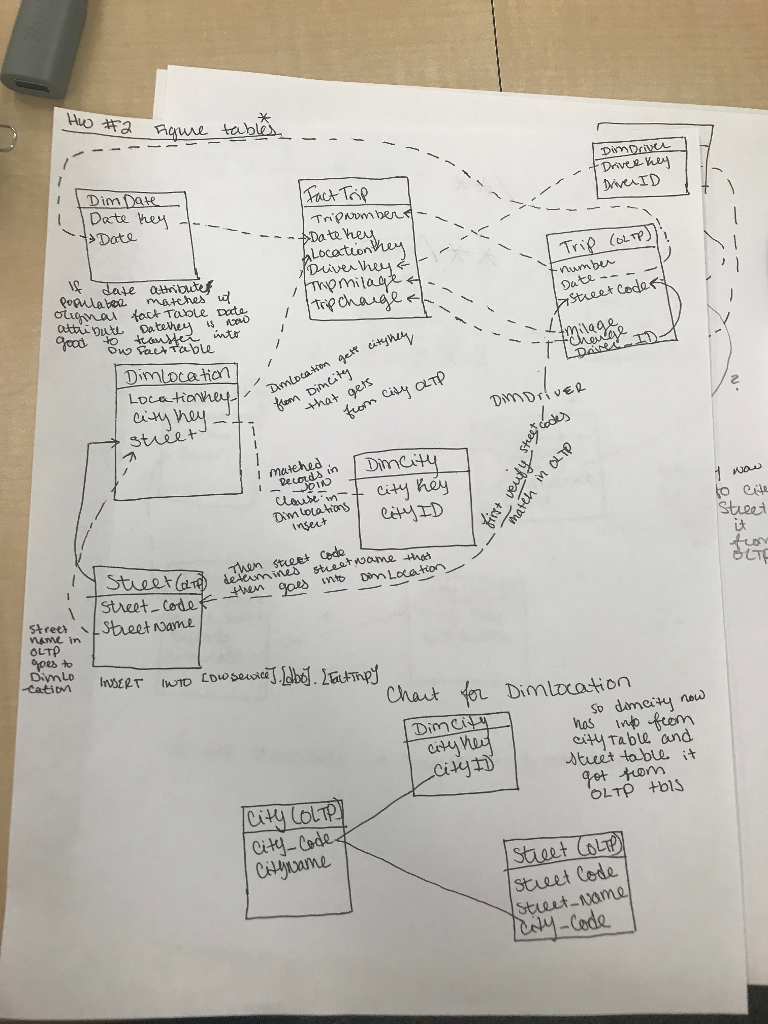 HW #2 Figure tables *
DimDriver
DriverKey
DriverID
DimDate
Date Key
Date
FactTrip
TripNumber
DateKey
LocationKey
DriverKey
TripMilage
TripCharge
Trip (OLTP)
number
Date
StreetCode
Milage
Charge
Driver_ID
If date attribute
populator matches w/
original fact Table Date
attribute DateKey is now
good to transfer into
DW FactTable
DimLocation
LocationKey
CityKey
Street
DimLocation gets cityKey
from DimCity
that gets
from City OLTP
DIMDRIVER
first verify street codes
match in OLTP
matched
Records in
JOIN
Clause in
DimLocations
Insert
DimCity
City Key
CityID
Then street code
determines streetName that
then goes into DimLocation
Street (OLTP)
Street_Code
StreetName
Street
name in
OLTP
goes to
DimLo
-cation
INSERT INTO [DWService].[dbo].[FactTrip]
?
now
to City
Street
it
from
OLTP
Chart for DimLocation
DimCity
cityKey
CityID
so dimcity now
has info from
cityTable and
Street table it
got from
OLTP tbls
City (OLTP)
City_Code
CityName
Street (OLTP)
Street Code
Street_Name
City_Code